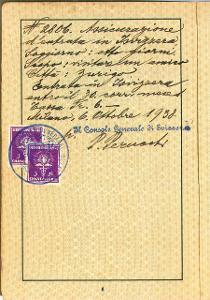 № 2806. Assicurazione
d'entrata in Isvizzera
Soggiorno: otto giorni
Scopo: visitare un amico
Città: Zurigo
Entrata in Isvizzera
entro il 30. corr. mese
Tassa Fr. 6.—
Milano, 6 Ottobre 1938
Il Console Generale di Svizzera